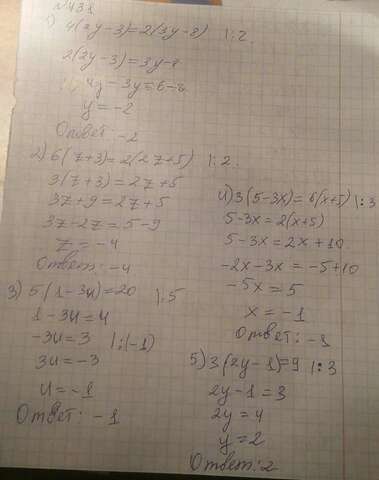 №438
1) 4(2y-3)=2(3y-8) |:2
2(2y-3)=3y-8
4y-3y=6-8
y=-2
Ответ: -2
2) 6(z+3)=2(2z+5) |:2
3(z+3)=2z+5
3z+9=2z+5
3z-2z=5-9
z=-4
Ответ: -4
3) 5(1-3u)=20 |:5
1-3u=4
-3u=3 |:(-1)
3u=-3
u=-1
Ответ: -1
4) 3(5-3x)=6(x+5) |:3
5-3x=2(x+5)
5-3x=2x+10
-2x-3x=-5+10
-5x=5
x=-1
Ответ: -1
5) 3(2y-1)=9 |:3
2y-1=3
2y=4
y=2
Ответ: 2